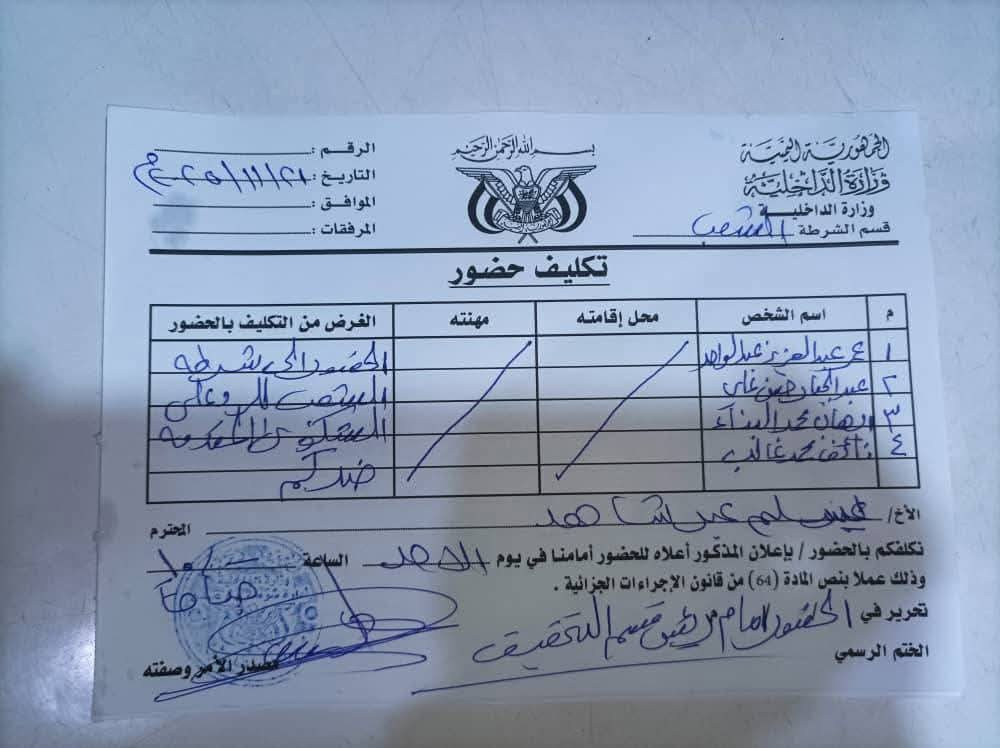 الجمهورية اليمنية
وزارة الداخلية
وزارة الداخلية
قسم الشرطة الشعب
بسم الله الرحمن الرحيم
الرقم :
التاريخ :
الموافق :
المرفقات :
تكليف حضور
م اسم الشخص محل إقامته مهنته الغرض من التكليف بالحضور
١ عبدالعزيز عبدالواحد الحضور الى شرطه
٢ عبدالجبار حسن علي الشعب للرد على
٣ محمد الشكوى المقدمه
٤ محمد غالب ضدكم
الأخ/ المحترم
نكلفكم بالحضور / بإعلان المذكور أعلاه للحضور أمامنا في يوم الاحد الساعة ١٠
صباحا
وذلك عملا بنص المادة (64) من قانون الإجراءات الجزائية .
تحرير في الحضور امام رئيس قسم التحقيق
الختم الرسمي
مصدر الأمر وصفته